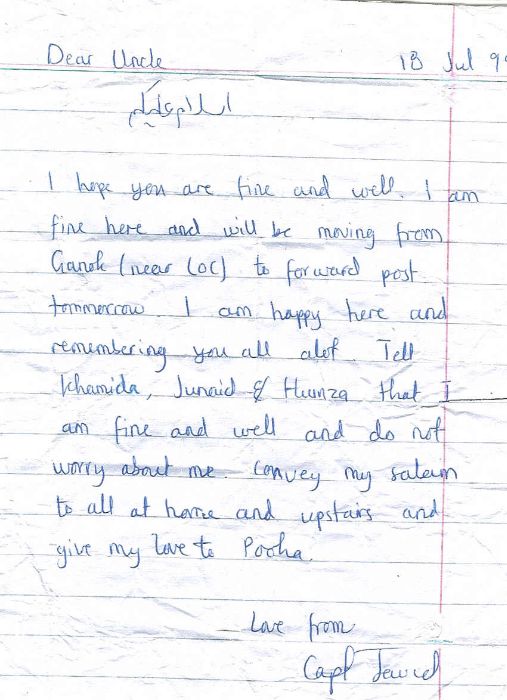 Dear Uncle 18 Jul 99
السلام علیکم
I hope you are fine and well. I am
fine here and will be moving from
Ganok (near LOC) to forward post
tommorrow. I am happy here and
remembering you all alot. Tell
Khamida, Junaid & Humza that I
am fine and well and do not
worry about me. Convey my salam
to all at home and upstairs and
give my love to
Love from
Capt